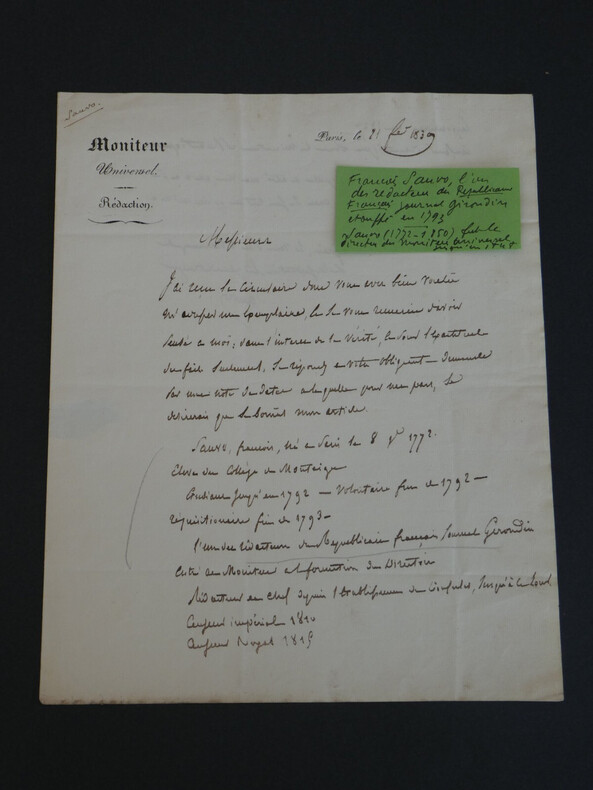 Sauvo.
Moniteur
Universel.
Rédaction.
Paris, le 21 1830
François Sauvo, l'un
des rédacteurs du Républicain
Français journal girondin
étouffé en 1793
Sauvo (1772-1850), fut le
directeur du moniteur universel
Messieurs
J'ai reçu la circulaire dont vous avez bien voulu
un exemplaire, je vous remercie d'avoir
pensé à moi; dans l'intérêt de la Vérité, de l'exactitude
des faits seulement, je réponds à votre obligeante demande
par une note de dates à laquelle pour ma part, je
désirerais que se bornât mon article.
Sauvo, françois, né à Paris le 8 1772.
Élève du Collège de Montaigu
jusqu'en 1792 — Volontaire fin de 1792 —
réquisitionnaire fin de 1793 —
l'un des rédacteurs du Républicain français Journal Girondin
de Moniteur à la formation du Directoire
Rédacteur en chef depuis l'établissement du Consulat, jusqu'à
Censeur impérial 1810
Censeur Royal 1815